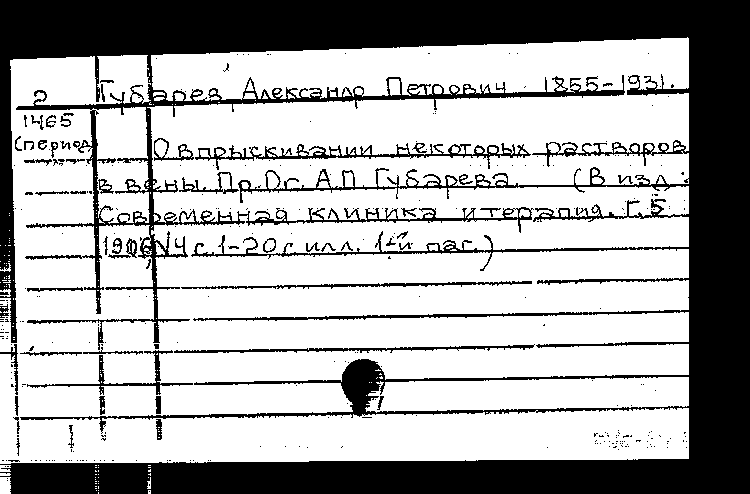 2 Губарев Александр Петрович 1855-1931.
1465
(период)
О впрыскивании некоторых растворов
в вены. Пр. Dr. А.П. Губарева. (В изд.:
Современная клиника и терапия. Г. 5
1906, N4 с. 1-20 с илл. 1-й паг.)